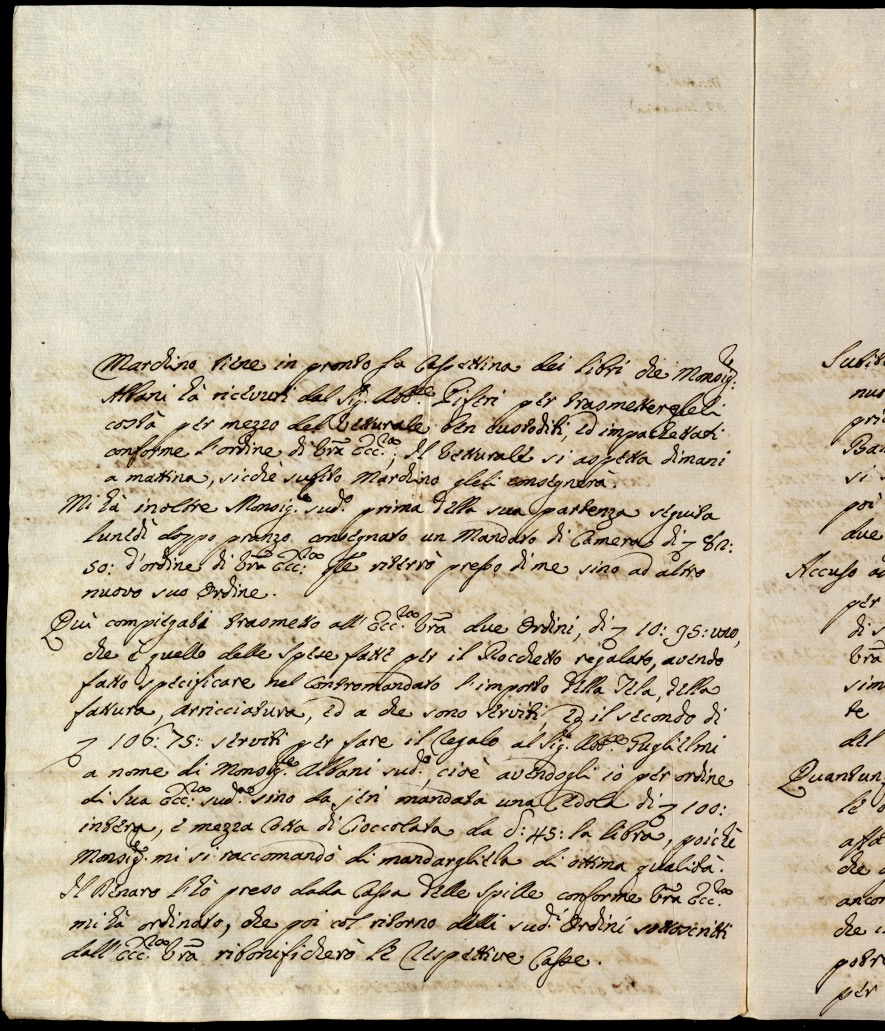 Marchino tiene in pronto la Cassettina dei libri che Monsig.re
Albani hà ricevuti dal Sig. Abb.e Piferi per trasmetterglieli
costà per mezzo del Vetturale ben custoditi, ed impachettati
conforme l'ordine di Vrã Ecc.za; Il Vetturale si aspetta dimani
a mattina, sicchè subito Marchino glieli consegnerà.
Mi hà inoltre Monsig.e sud.o prima della sua partenza seguita
lunedì doppo pranzo consegnato un Mandato di Camera di 82:
50: d'ordine di Vrã Ecc.za che riterrò presso di me sino ad altro
nuovo suo ordine.
Quì compiegati trasmetto all'Ecc.za Vrã due Ordini, di 10: 95: uno,
che è quello delle spese fatte per il Rocchetto regalato, avendo
fatto specificare nel Contromandato l'importo della Tela, della
fattura, arricciatura, ed a che sono serviti, Ed il secondo di
106: 75: serviti per fare il Regalo al Sig. Abb.e Guglielmi
a nome di Monsig.e Albani sud.o, cioè avendogli io per ordine
di Sua Ecc.za sud.a sino da jeri mandata una Cedola di 100:
intera, e mezza Cotta di Cioccolata da 45: la libra, poichè
Monsig. mi si raccomandò di mandargliela di ottima qualità.
Il Denaro l'hò preso dalla Cassa delle Spille conforme Vrã Ecc.za
mi hà ordinato, che poi col ritorno delli sud.i Ordini sottoscritti
dall'Ecc.za Vrã ribonificherò le Respettive Casse.
Subito
Accuso
per
di
Vrã
te
del
Quantun
che
ancor
che
potr
per